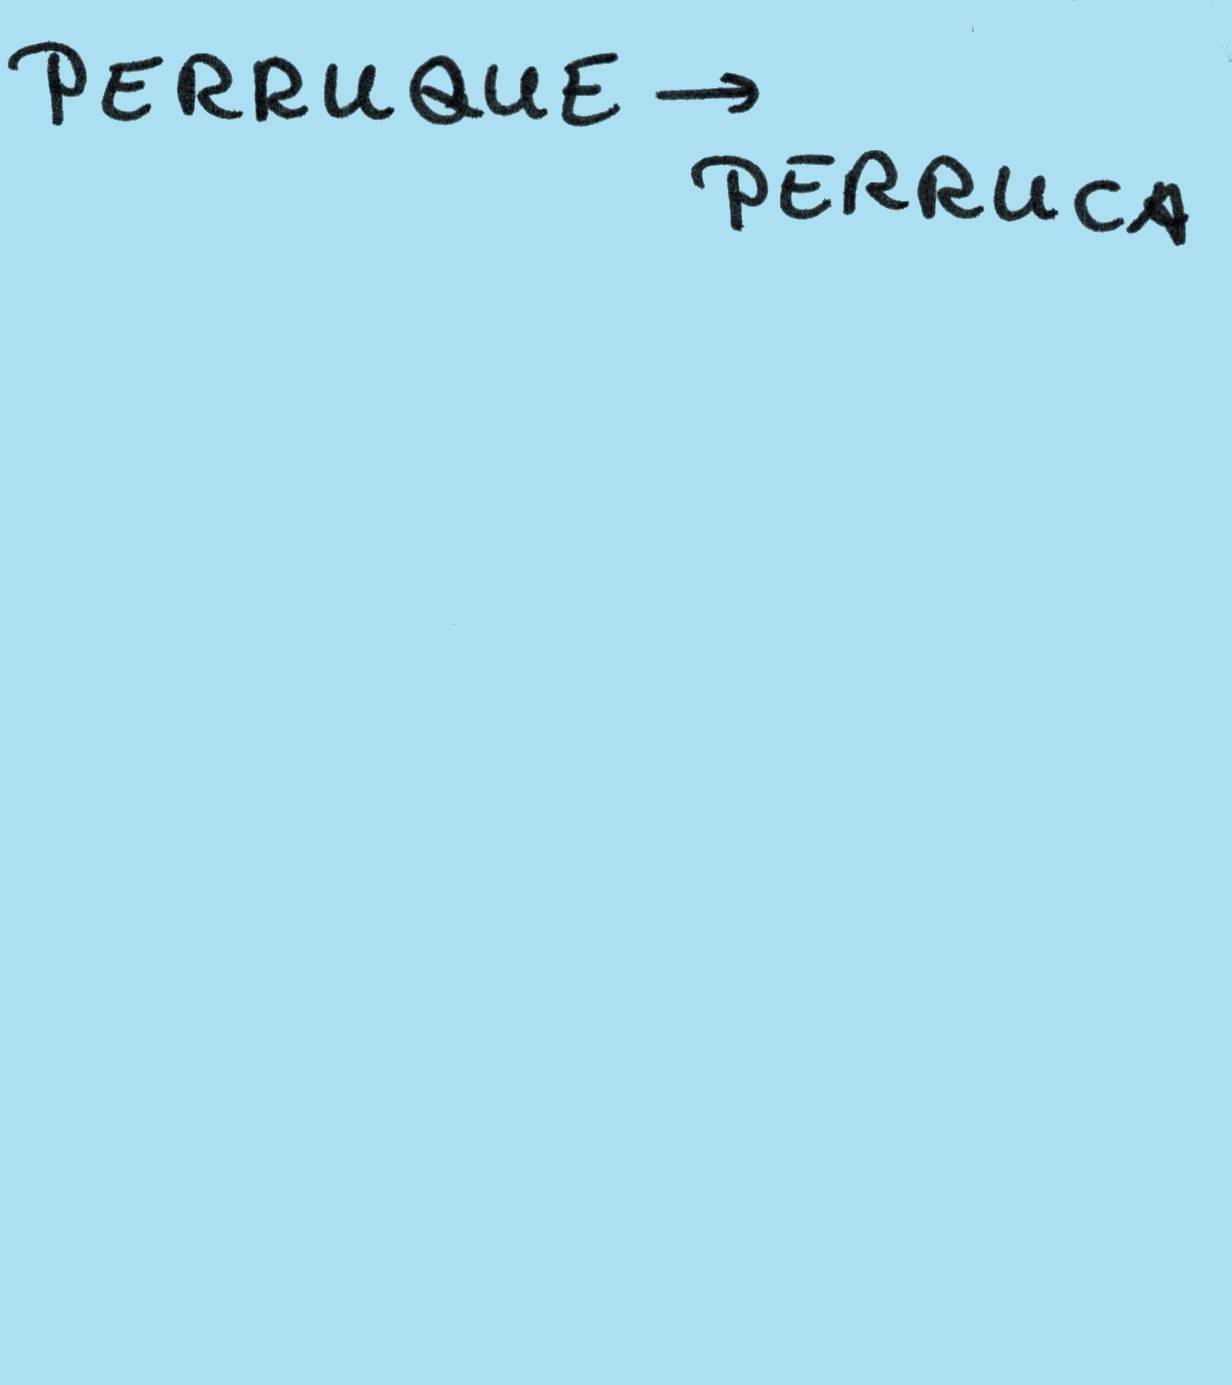 PERRUQUE →
PERRUCA